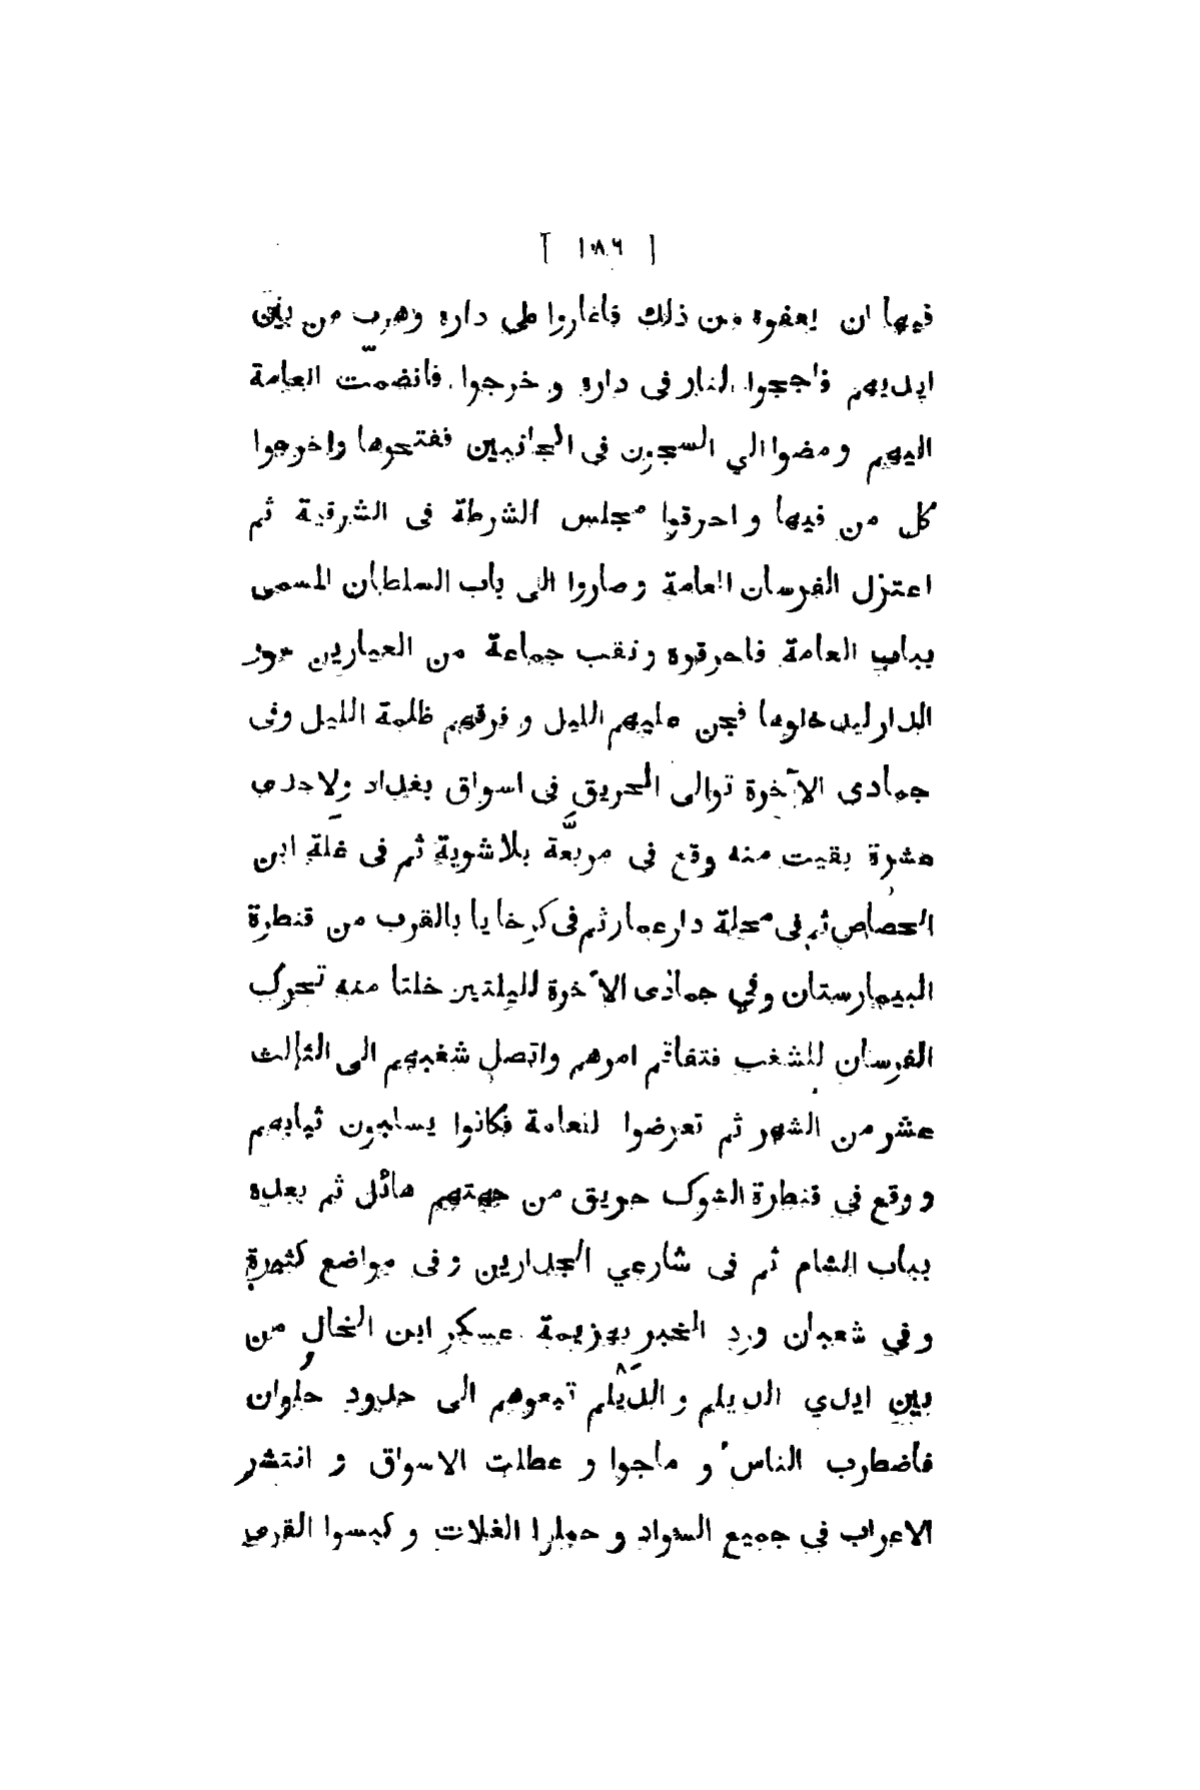 [ ١٨٦ ]
فيها ان يعفوه من ذلك فاغاروا على داره وهرب من بين
ايديهم فاججوا النار في داره و خرجوا فانضمّت العامة
اليهم ومضوا الي السجون في الجانبين ففتحوها واخرجوا
كل من فيها و احرقوا مجلس الشرطة في الشرقية ثم
اعتزل الفرسان العامة وصاروا الى باب السلطان المسمى
بباب العامة فاحرقوه ونقب جماعة من العيارين سور
الدار ليدخلوها فجن عليهم الليل و فرقهم ظلمة الليل وفى
جمادى الآخرة توالى الحريق فى اسواق بغداد ولاحدى
عشرة بقيت منه وقع في مربّعة بلاشوية ثم فى غلّة ابن
الحصاص ثم فى محلة دار عمار ثم فى كرخايا بالقرب من قنطرة
البيمارستان وفي جمادى الآخرة لليلتين خلتا منه تحرك
الفرسان للشغب فتفاقم امرهم واتصل شغبهم الى الثالث
عشر من الشهر ثم تعرضوا للعامة فكانوا يسلبون ثيابهم
و وقع في قنطرة الشوك حريق من جهتهم هائل ثم بعده
بباب الشام ثم فى شارعي الجدارين و فى مواضع كثيرة
و في شعبان ورد الخبر بهزيمة عسكر ابن الخال من
بين ايدي الديلم و الدَيْلم تبعوهم الى حدود حُلوان
فاضطرب الناس و ماجوا و عطلت الاسواق و انتشر
الاعراب في جميع السواد و حملوا الغلات و كبسوا القرى